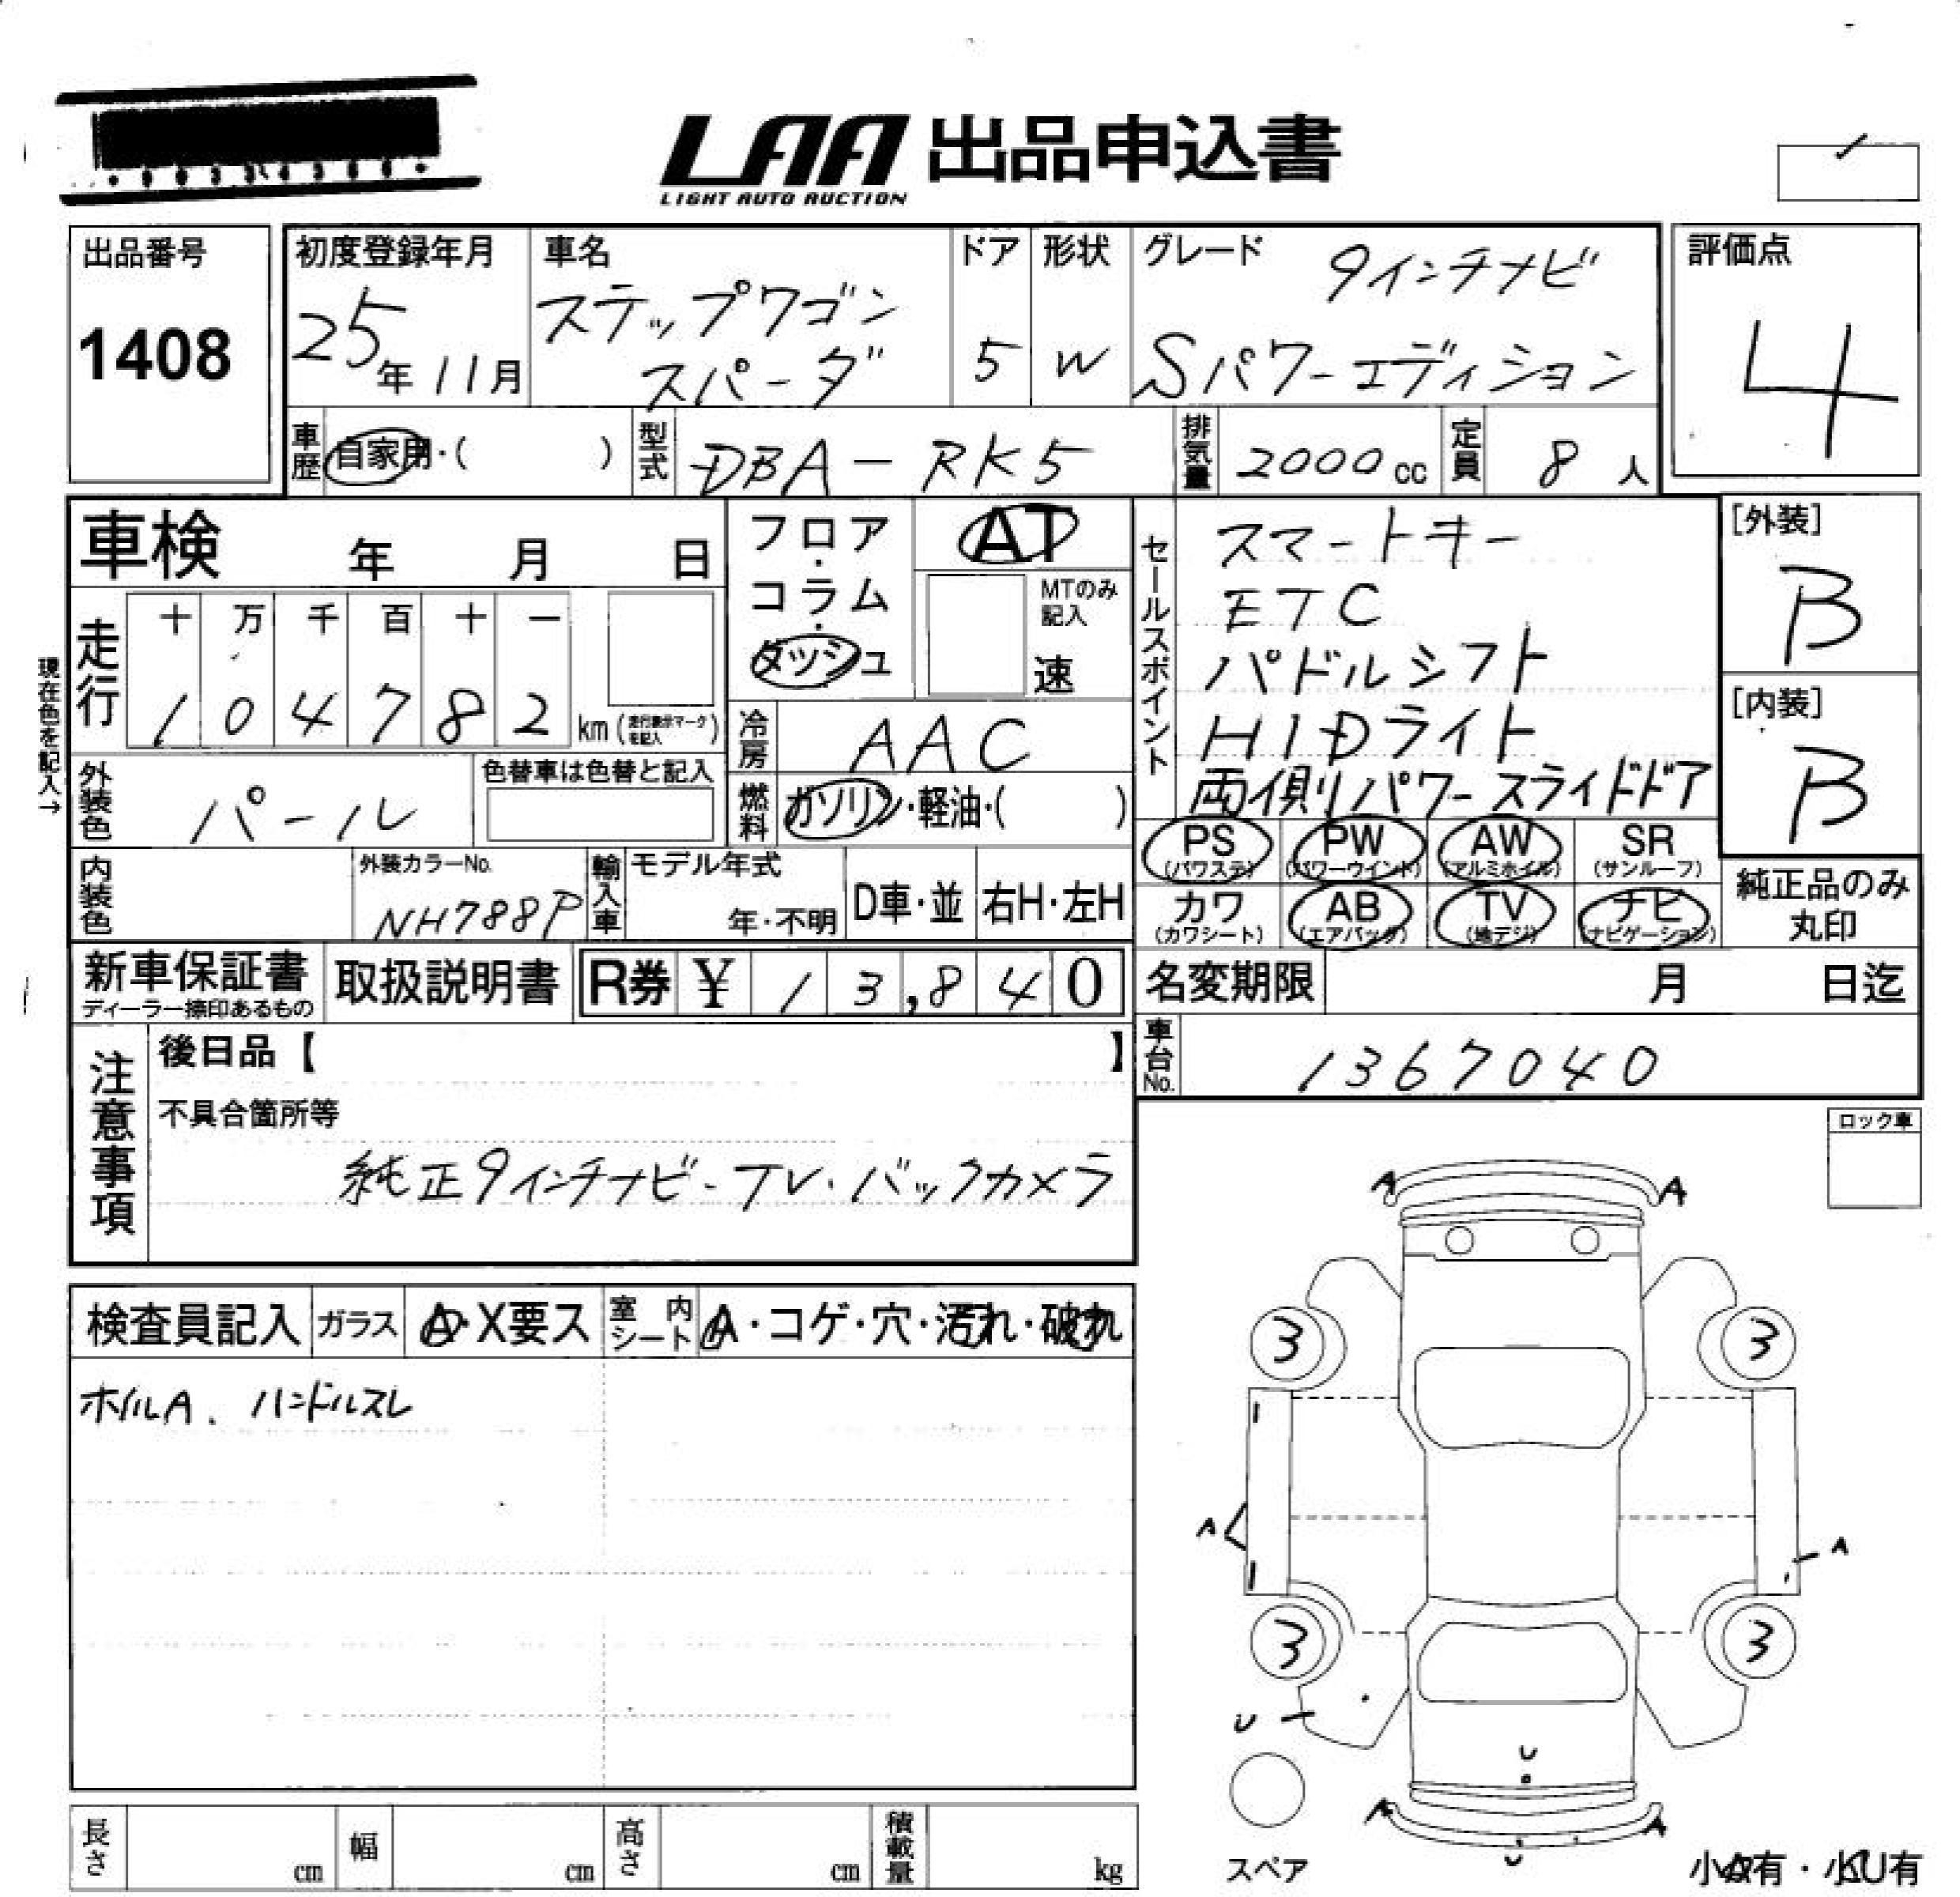 LAA 出品申込書
LIGHT AUTO AUCTION
出品番号
1408
初度登録年月
25年11月
車名
ステップワゴン
スパーダ
ドア
5
形状
W
グレード
9インチナビ
Sパワーエディション
評価点
4
車歴
自家用・( )
型式
DBA-RK5
排気量
2000cc
定員
8人
車検 年 月 日
フロア・コラム・ダッシュ
AT
MTのみ記入
速
セールスポイント
スマートキー
ETC
パドルシフト
HIDライト
両側パワースライドドア
[外装]
B
[内装]
B
現在色を記入→
走行
十 万 千 百 十 一
1 0 4 7 8 2 km (走行表示マークを記入)
冷房
AAC
外装色
パール
色替車は色替と記入
燃料
ガソリン・軽油・( )
PS (パワステ)
PW (パワーウインド)
AW (アルミホイル)
SR (サンルーフ)
カワ (カワシート)
AB (エアバッグ)
TV (地デジ)
ナビ (ナビゲーション)
純正品のみ
丸印
内装色
外装カラーNo.
NH788P
輸入車
モデル年式
年・不明
D車・並
右H・左H
新車保証書
ディーラー捺印あるもの
取扱説明書
R券 ¥ 13,840
名変期限 月 日迄
車台No.
1367040
注意事項
後日品【 】
不具合箇所等
純正9インチナビ-TV・バックカメラ
ロック車
検査員記入
ガラス
A・X要ス
室内シート
A・コゲ・穴・汚れ・破れ
ホイルA. ハンドルスレ
A A
3 3
A A
3 3
U
U
A A
U
スペア
小A有・小U有
長さ cm
幅 cm
高さ cm
積載量 kg